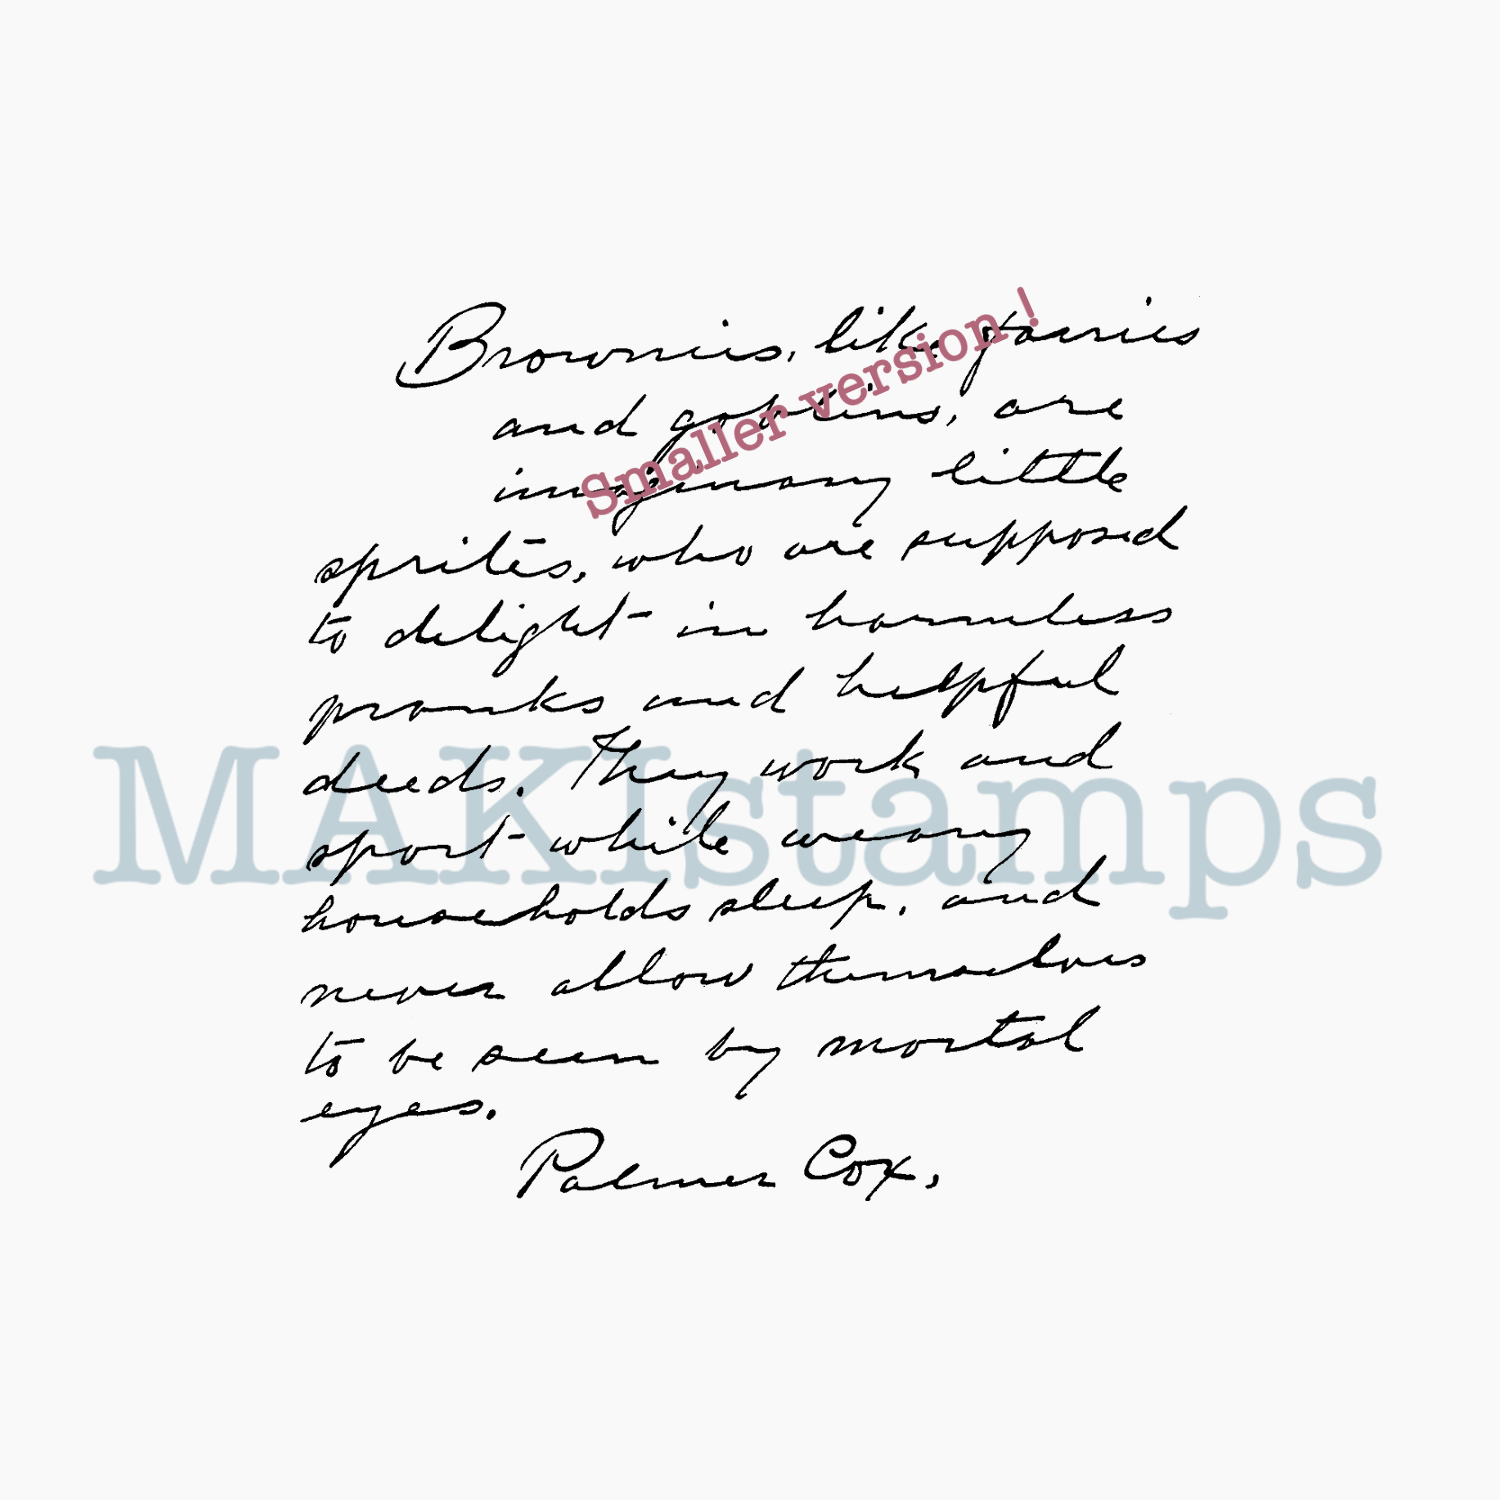 Brownies, like fairies
and goblins, are
imaginary little
sprites, who are supposed
to delight in harmless
pranks and helpful
deeds. They work and
sport while weary
households sleep, and
never allow themselves
to be seen by mortal
eyes.
Palmer Cox.
Smaller version !
MAKIstamps